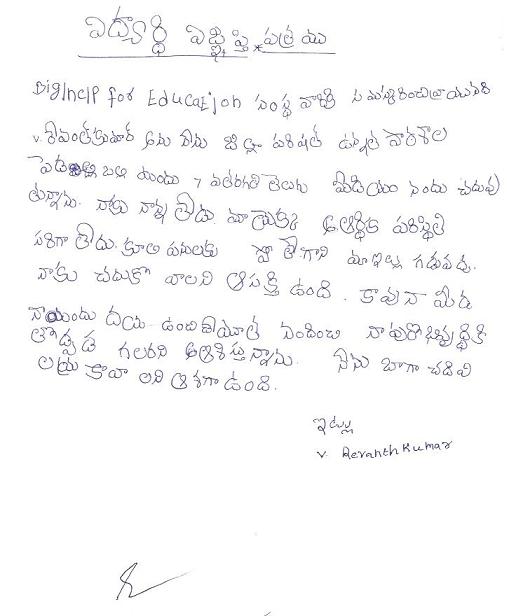 విద్యార్థి విజ్ఞప్తి పత్రము
BigHelp for Education సంస్థ వారికి సమర్పించుకొనునది
v. రేవంత్‌కుమార్ అను నేను జిల్లా పరిషత్ ఉన్నత పాఠశాల
నందు 7 వతరగతి తెలుగు మీడియం నందు చదువు
తున్నాను. నాకు నాన్న లేడు. మా యొక్క ఆర్థిక పరిస్థితి
సరిగా లేదు. కూలి పనులకు పో తేగాని మా ఇల్లు గడువదు.
నాకు చదుకో వాలని ఆసక్తి ఉంది. కావున మీరు
నాయందు దయ ఉంచి చేయూత నందించి నా పురోభివృద్ధికి
తోడ్పడ గలరని ఆశిస్తున్నాను. నేను బాగా చదివి
కావా లని ఆశగా ఉంది.
ఇట్లు
v. Revanth Kumar